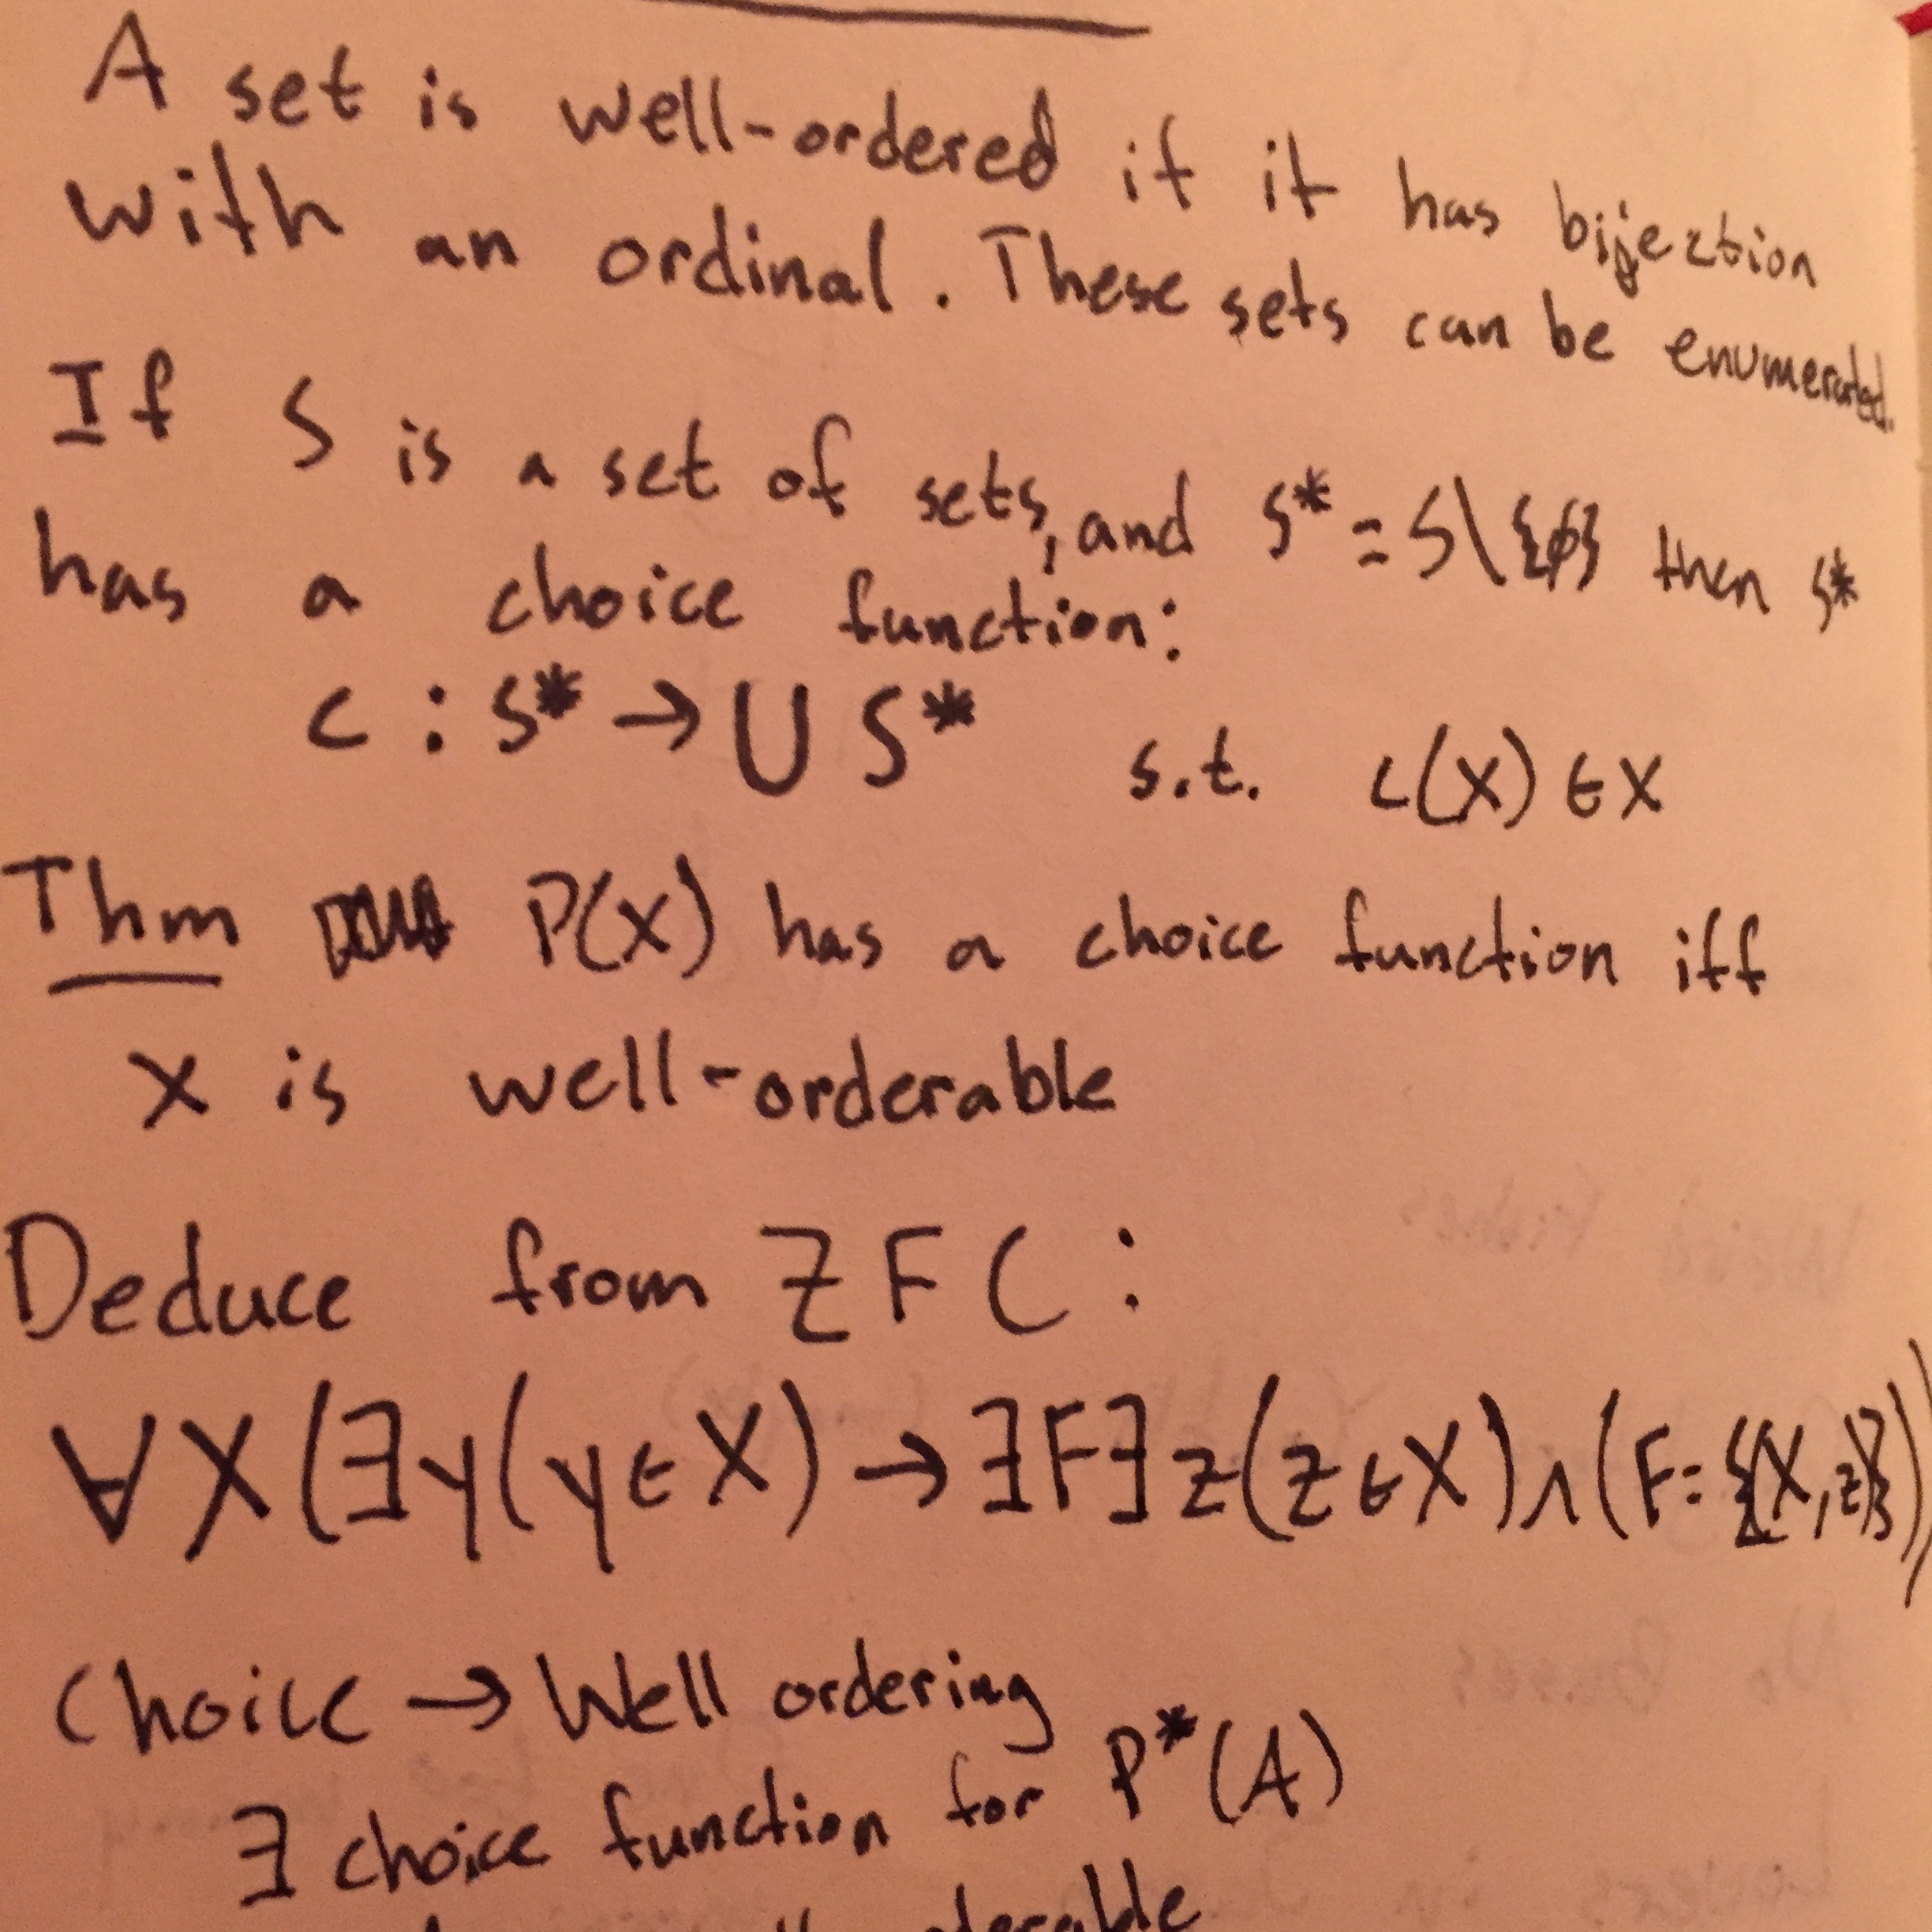 A set is well-ordered if it has bijection
with an ordinal. These sets can be enumerated.
If S is a set of sets, and S* = S\{ϕ} then S*
has a choice function:
C : S* → ∪ S* s.t. C(X) ∈ X
Thm P(X) has a choice function iff
X is well-orderable
Deduce from ZFC:
∀X(∃y(y∈X) → ∃F∃z(z∈X)∧(F={(X,z)}))
Choice → Well ordering
∃ choice function for P*(A)